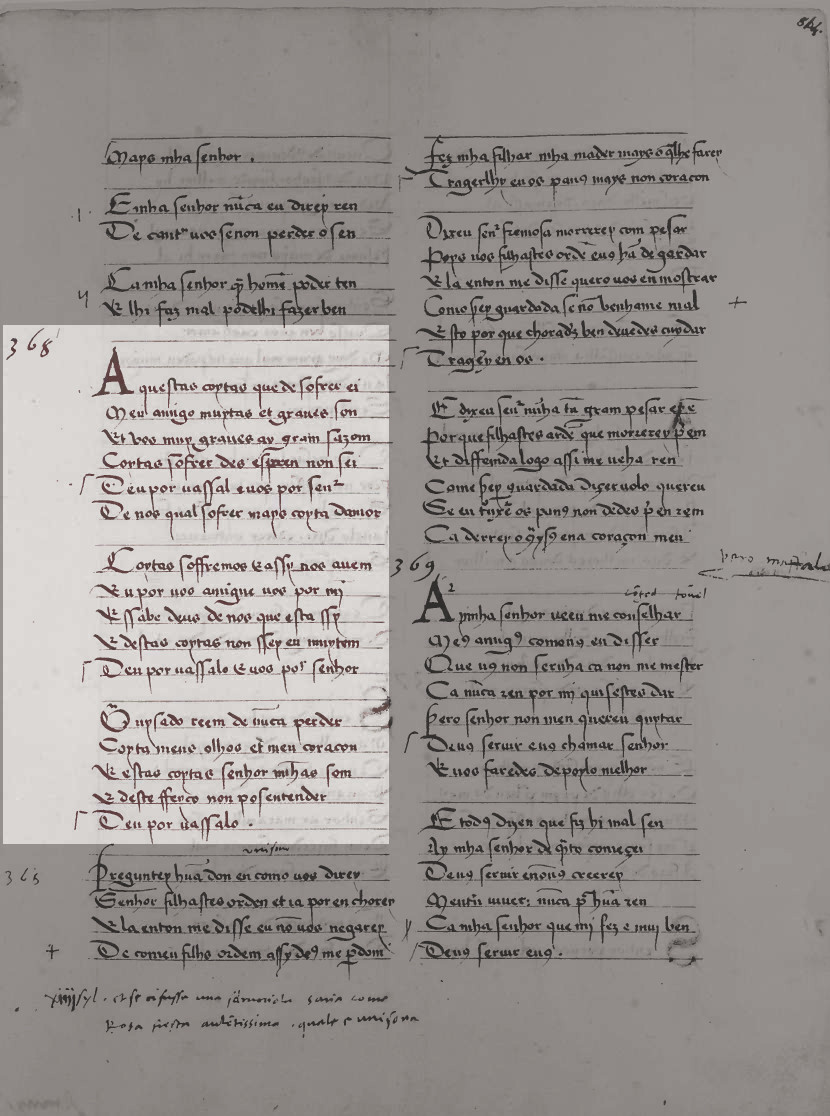 84.
Mays mha senhor .
E mha senhor nũca eu direy ren
De cantr uos senon perder o sen
Ca mha senhor q̃ home poder ten
Et lhi faz mal podelhi fazer ben
368
Aquestas coytas que de sofrer ei
Meu amigo muytas et graues son
Et vos muy graues ay gram sazom
Coytas sofrer des e non sei
Deu por uassal euos por senr
De nos qual sofrer mays coyta damor
Coytas soffremos et assy nos auem
Eu por uos amigue uos por mi
Et ssabe deus de nos que esta ssy
Et destas coytas non ssey eu muytem
Deu por uassalo et uos por senhor
Guysado teem de nũca perder
Coyta meus olhos et meu coraçon
Et estas coytas senhor mĩhas som
Et deste ffeyto non posentender
Deu por uassalo .
Preguntey hũa don en como uos direy
Senhor filhastes orden et ia por en chorey
Et ela enton me disse eu nõ uos negarey
De comeu filhs ordem assy des me perdom
fez mha filhar mha madre mays o q̃lhe farey
Tragerlhy eu os panos mays non coraçon
Dixeu senr fremosa morrerey com pesar
Poys uos filhastes ordẽ e uos hã de gardar
Et ela enton me disse quero uos en mostrar
Como sey guardada se nõ benhame mal
Esto por que choradez ben deuedes cuydar
Tragerey en os .
E dixeu senr mĩha tã gram pesar
Por que filhastes ordẽ que morrerey por em
Et diss enda logo assi me ueha ren
Come sey guardada dizer uolo quereu
Se eu trager os panos non dedes por en rem
Ca derrey o en a coraçon meu
369
Ay mha senhor ueeu me conselhar
Meus amigos comouos eu disser
Que uos non seruha ca non me mester
Ca nũca ren por mi quisestes dar
Pero senhor non men quereu quytar
Deuos seruir euos chamar senhor
Et uos faredes depoylo melhor
E todos dizen que fiz hi mal sen
Ay mha senhor de q̃to começei
Deuos seruir e nonos creerey
Mentr uiuer nũca por hũa ren
Ca mha senhor que mi fez e muy ben
Deuos seruir euos .